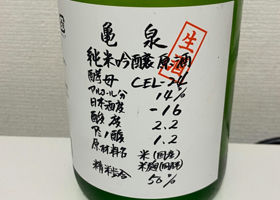 亀泉
生酒
純米吟醸原酒
酵母 CEL-24
アルコール分 14%
日本酒度 -16
酸度 2.2
アミノ酸 1.2
原材料名 米(国産)
米麹(国産米)
精粕合 50%